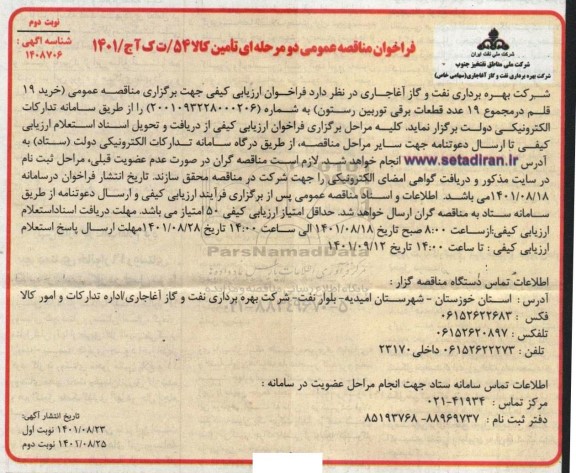 نوبت دوم
شناسه آگهی :
۱۴۰۸۷۰۶
فراخوان مناقصه عمومی دو مرحله ای تأمین کالا ۵۴/ت ک آج/۱۴۰۱
شرکت ملی نفت ایران
شرکت ملی مناطق نفتخیز جنوب
شرکت بهره برداری نفت و گاز آغاجاری(سهامی خاص)
شرکت بهره برداری نفت و گاز آغاجاری در نظر دارد فراخوان ارزیابی کیفی جهت برگزاری مناقصه عمومی (خرید ۱۹
قلم درمجموع ۱۹ عدد قطعات برقی توربین رستون) به شماره (۲۰۰۱۰۹۳۲۲۸۰۰۰۲۰۶) را از طریق سامانه تدارکات
الکترونیکی دولت برگزار نماید. کلیه مراحل برگزاری فراخوان ارزیابی کیفی از دریافت و تحویل اسناد استعلام ارزیابی
کیفی تا ارسال دعوتنامه جهت سایر مراحل مناقصه، از طریق درگاه سامانه تدارکات الکترونیکی دولت (ستاد) به
آدرس www.setadiran.ir انجام خواهد شد. لازم است مناقصه گران در صورت عدم عضویت قبلی، مراحل ثبت نام
در سایت مذکور و دریافت گواهی امضای الکترونیکی را جهت شرکت در مناقصه محقق سازند. تاریخ انتشار فراخوان درسامانه
۱۴۰۱/۰۸/۱۸می باشد. اطلاعات و اسناد مناقصه عمومی پس از برگزاری فرآیند ارزیابی کیفی و ارسال دعوتنامه از طریق
سامانه ستاد به مناقصه گران ارسال خواهد شد. حداقل امتیاز ارزیابی کیفی ۵۰ امتیاز می باشد. مهلت دریافت اسناداستعلام
ارزیابی کیفی:ازساعت ۸:۰۰ صبح تاریخ ۱۴۰۱/۰۸/۱۸ الی ساعت ۱۴:۰۰ تاریخ ۱۴۰۱/۰۸/۲۸مهلت ارسال پاسخ استعلام
ارزیابی کیفی : تا ساعت ۱۴:۰۰ تاریخ ۱۴۰۱/۰۹/۱۲
ParsNamadData
اطلاعات تماس دستگاه مناقصه گزار :
آدرس : استان خوزستان - شهرستان امیدیه- بلوار نفت- شرکت بهره برداری نفت و گاز آغاجاری/اداره تدارکات و امور کالا
فکس : ۰۶۱۵۲۶۲۲۶۸۳
تلفکس : ۰۶۱۵۲۶۲۰۸۹۷
تلفن : ۰۶۱۵۲۶۲۲۲۷۳ داخلی ۲۳۱۷۰
اطلاعات تماس سامانه ستاد جهت انجام مراحل عضویت در سامانه :
مرکز تماس : ۴۱۹۳۴-۰۲۱
دفتر ثبت نام : ۸۸۹۶۹۷۳۷- ۸۵۱۹۳۷۶۸
تاریخ انتشار آگهی:
۱۴۰۱/۰۸/۲۳ نوبت اول
۱۴۰۱/۰۸/۲۵ نوبت دوم